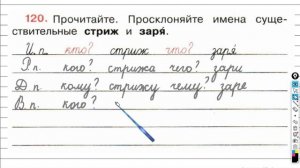 120. Прочитайте. Просклоняйте имена суще-
ствительные стриж и заря́.
И.п. кто? стриж что? заря
Р.п. кого? стрижа чего? зари
Д.п. кому? стрижу чему? заре
В.п. кого?